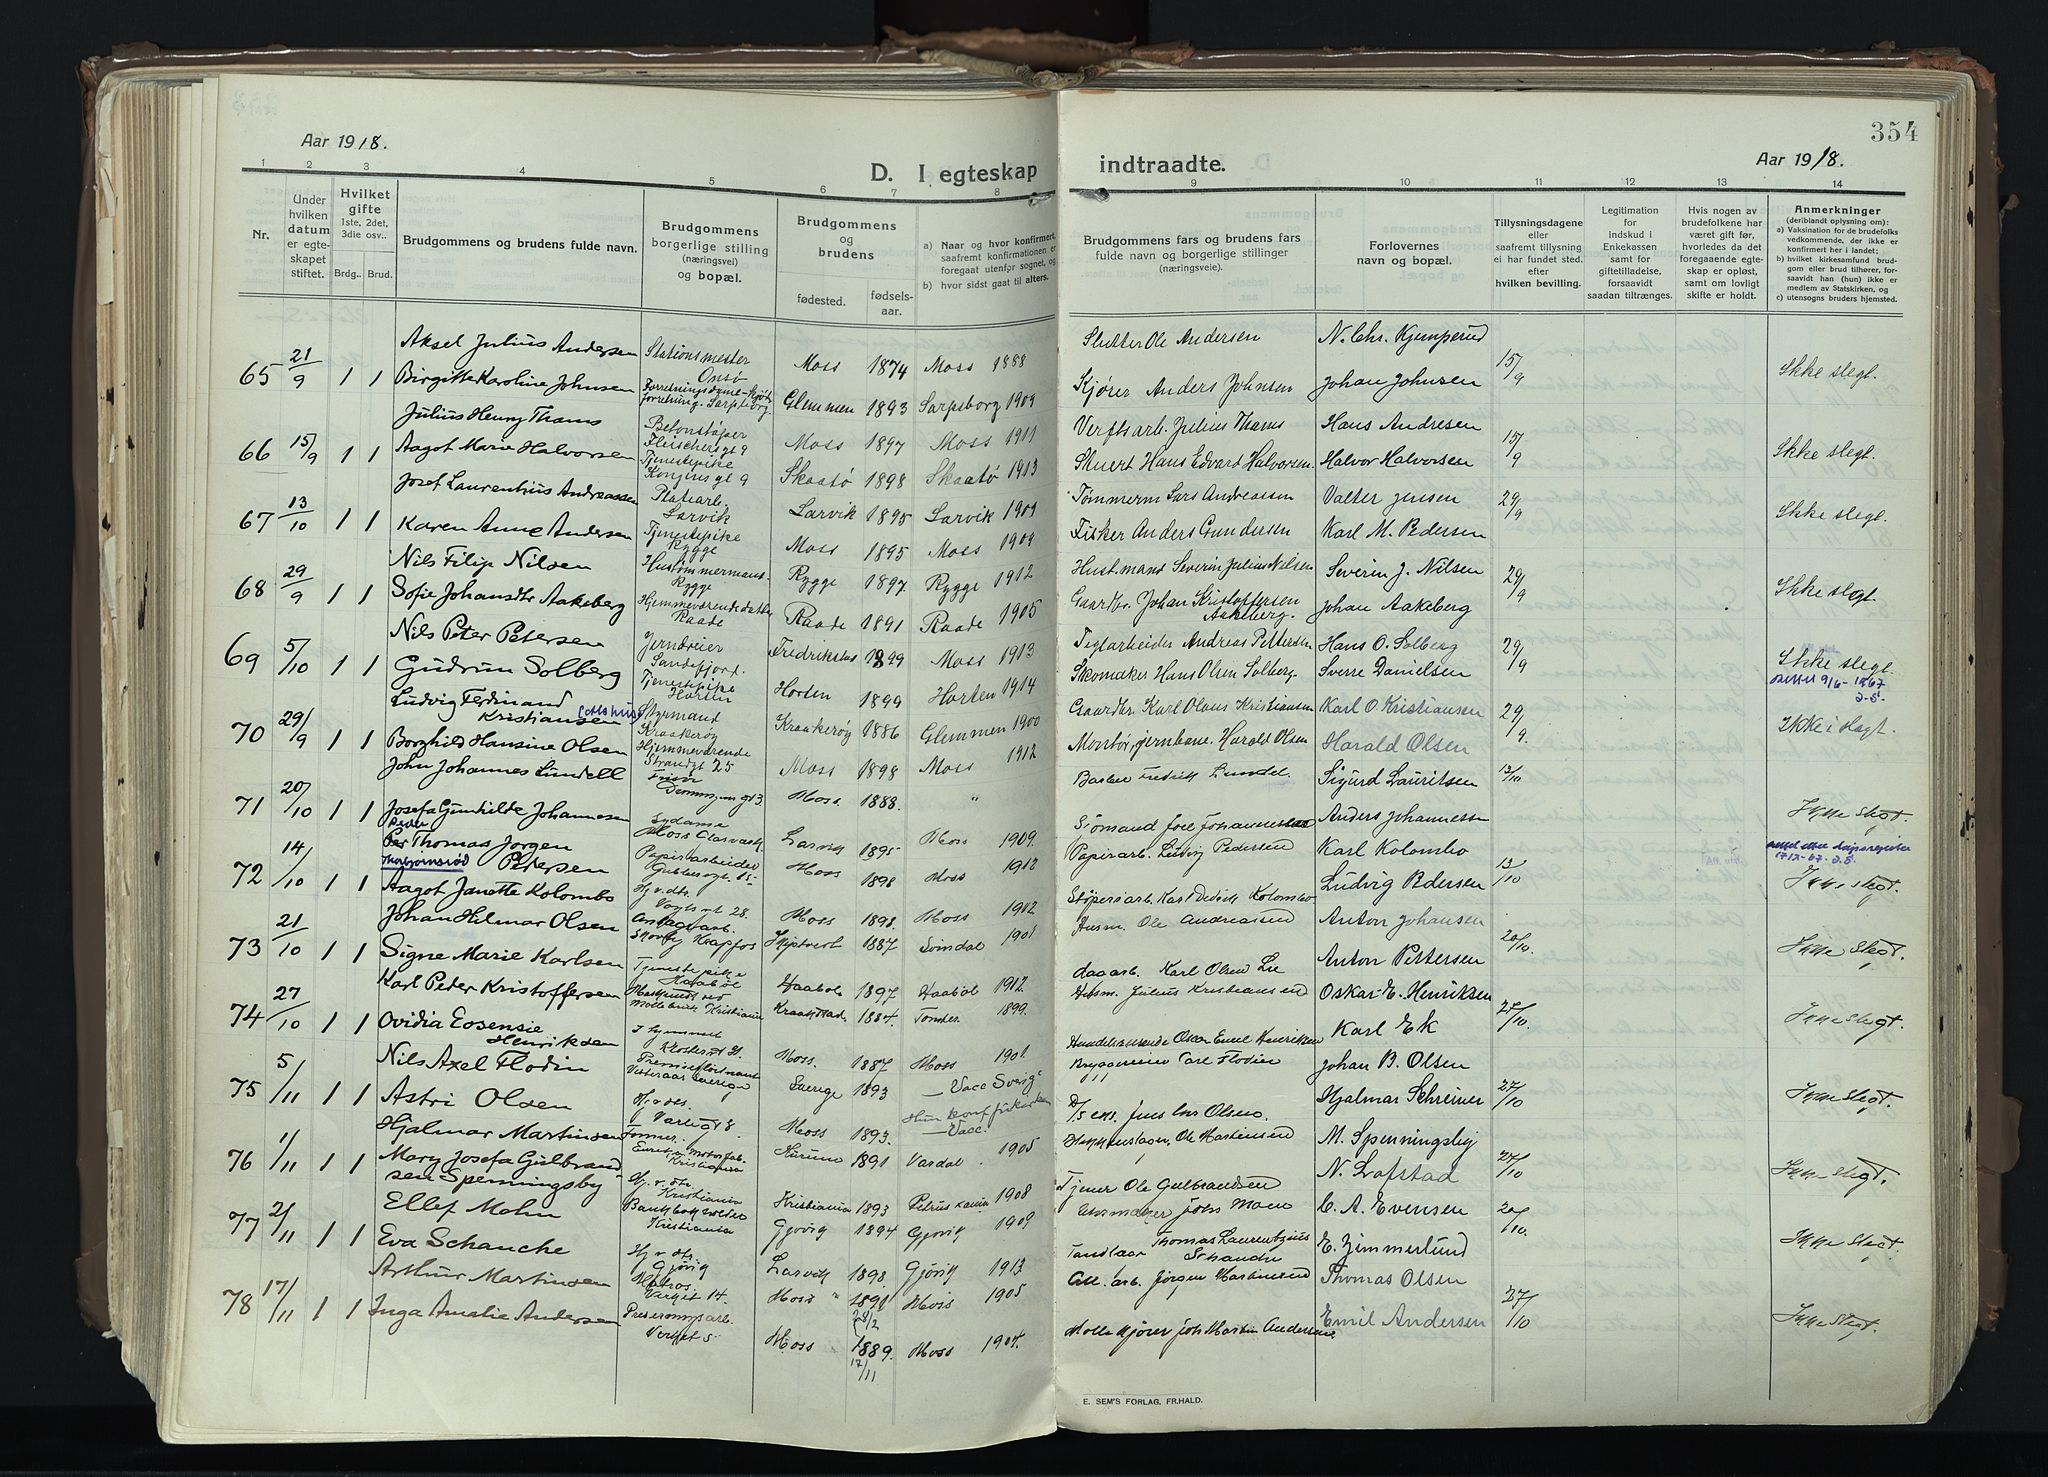 354
Aar 1918.
D. I egteskap indtraadte.
Aar 1918.
1 2 3 4 5 6 7 8 9 10 11 12 13 14
Nr.
Under hvilken datum er egteskapet stiftet.
Hvilket gifte 1ste, 2det, 3die osv..
Brdg.. Brud.
Brudgommens og brudens fulde navn.
Brudgommens borgerlige stilling (næringsvei) og bopæl.
Brudgommens og brudens
fødested.
fødselsaar.
a) Naar og hvor konfirmert, saafremt konfirmationen er foregaat utenfor sognet, og
b) hvor sidst gaat til alters.
Brudgommens fars og brudens fars fulde navn og borgerlige stillinger (næringsveie).
Forlovernes navn og bopæl.
Tillysningsdagene eller saafremt tillysning ei har fundet sted, efter hvilken bevilling.
Legitimation for indskud i Enkekassen samt for giftetilladelse, forsaavidt saadan tiltrænges.
Hvis nogen av brudefolkene har været gift før, hvorledes da det foregaaende egteskap er opløst, samt om lovligt skifte er holdt.
Anmerkninger (deriblandt oplysning om):
a) Vaksination for de brudefolks vedkommende, der ikke er konfirmert her i landet;
b) hvilket kirkesamfund brudgom eller brud tilhører, forsaavidt han (hun) ikke er medlem av Statskirken, og
c) utensogns bruders hjemsted.
65 21/9 1 1 Aksel Julius Andersen Stationsmester Onsø Moss 1874 Moss 1888 Slutter Ole Andersen N. Chr. Kjemperud 15/9 Ikke slegt.
Birgitte Karoline Johnsen Sarpsborg. Glemmen 1893 Sarpsborg 1909 Kjører Anders Johnsen Johan Johnsen
66 15/9 1 1 Julius Henry Thams Betonstøper Fleischersgt 9 Moss 1897 Moss 1911 Verftsarb. Julius Thams Hans Andresen 15/9 Ikke slegt.
Aagot Marie Halvorsen Tjenestepike Kongensgt 9 Skaatø 1898 Skaatø 1913 Stuert Hans Edvard Halvorsen Halvor Halvorsen
67 13/10 1 1 Josef Laurentius Andreassen Platearb. Larvik Larvik 1895 Larvik 1909 Tømmerm Lars Andreassen Valter Jensen 29/9 Ikke slegt.
Karen Anne Andersen Tjenestepike Rygge Moss 1895 Moss 1909 Fisker Anders Gundersen Karl M. Pedersen
68 29/9 1 1 Nils Filip Nilsen Hustømmermand Rygge Rygge 1897 Rygge 1912 Hustmand Severin Julius Nilsen Severin J. Nilsen 29/9 Ikke slegt.
Sofie Johansdtr Aakeberg Hjemmeværende datter Raade Raade 1891 Raade 1905 Gaardbr. Johan Kristoffersen Aakeberg. Johan Aakeberg
69 5/10 1 1 Nils Peter Petersen Jerndreier Sandefjord. Fredrikstad 1899 Moss 1913 Teglarbeider Andreas Pettersen Hans O. Solberg 29/9 Ikke slegt.
Gudrun Solberg Tjenestepike Horten Horten 1899 Horten 1914 Skomaker Hans Olsen Solberg. Sverre Danielsen
70 29/9 1 1 Ludvig Ferdinand Kristiansen Styrmand Kraakerøy Kraakerøy 1886 Glemmen 1900 Gaardbr Karl Olaus Kristiansen Karl O. Kristiansen 29/9. Ikke i slegt.
Borghild Hansine Olsen Hjemmeværende Strandgt 25 Moss 1898 Moss 1912 Montør, jernbane. Harald Olsen Harald Olsen
71 20/10 1 1 John Johannes Lundell Frisør Moss. 1888. " Barber Fredrik Lundel. Sigurd Lauritsen 13/10 Ikke slegt.
Josefa Gunhilde Johannesen Sydame Larvik 1895 Moss 1909. Sjømand Joel Johannessen Anders Johannessen
72 14/10 1 1 Peder Per Thomas Jørgen Petersen Papirarbeider Moss 1898 Moss 1912 Papirarb. Ludvig Pedersen Karl Kolombo 13/10 Ikke slegt.
Aagot Janette Kolombo Hj.v.dtr. Vogtsgt 28. Moss 1898 Moss 1912 Støperiarb. Karl Didrik Kolombo Ludvig Pedersen
73 21/10 1 1 Johan Hilmar Olsen Anlægsarb. Krapfos 1887 1901 Husm. Ole Andreasen Anton Johansen 20/10. Ikke slegt.
Signe Marie Karlsen Tjenestepike Haabøl Haabøl 1897 Haabøl 1912 dagarb. Karl Olsen Lie Anton Pettersen
74 27/10 1 1 Karl Peder Kristoffersen Kristiania 1884. 1899. Husm. Julius Kristiansen Oskar E. Henriksen 27/10. Ikke slegt.
Ovidia Eosensie Henriksen Moss. 1887 Moss 1901. Handelsreisende Oscar Emil Henriksen Karl Ek
75 5/11 1 1 Nils Axel Flodin Sverige Sverige 1893 Vacc Sverige Carl Flodin Johan B. Olsen 27/10 Ikke slegt.
Astri Olsen Hj.v.dtr. Moss 1893. Jens Olsen. Hjalmar Schreiner
76 1/11 1 1 Hjalmar Martinsen Kristiania 1891 Vardal. 1905 Ole Martinsen M. Spenningsby 27/10 Ikke slegt.
Mary Josefa Gulbrandsen Spenningsby Hj.v.dtr. Kristiania Kristiania 1893 1908 Tjener Ole Gulbrandsen N. Lofstad
77 2/11 1 1 Ellef Mohn Kristiania Gjøvig 1894 Gjøvig 1909 C. A. Evensen 20/10. Ikke slegt.
Eva Schanche Hj.v.dtr. Gjøvig Larvik 1898. Gjøvig 1913 Tandlæge Thomas Schanche E. Zimmerlund
78 17/11 1 1 Arthur Martinsen Matros. Verket 14. Moss 1891 28/2 Moss 1905 Jørgen Martinsen Thomas Olsen 27/10 Ikke slegt.
Inga Amalie Andersen Verket 5 Moss 1889. 17/11 Moss 1904. Mølle kjører Joh Martin Andersen Emil Andersen
E. SEM'S FORLAG, FR.HALD.